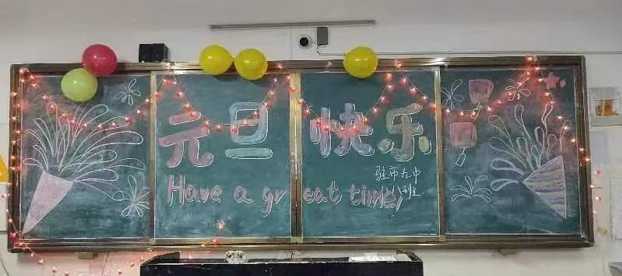 元旦快乐
Have a great time!
驻市九中
八班